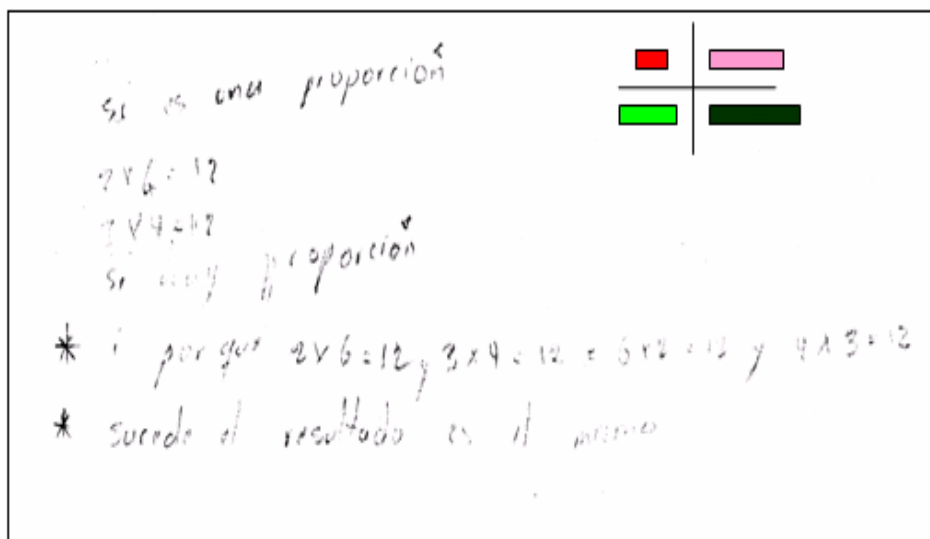 si es una proporción
2x6=12
3x4=12
si hay proporción
* i porque 2x6=12 y 3x4=12 = 6x2=12 y 4x3=12
* sucede el resultado es el mismo